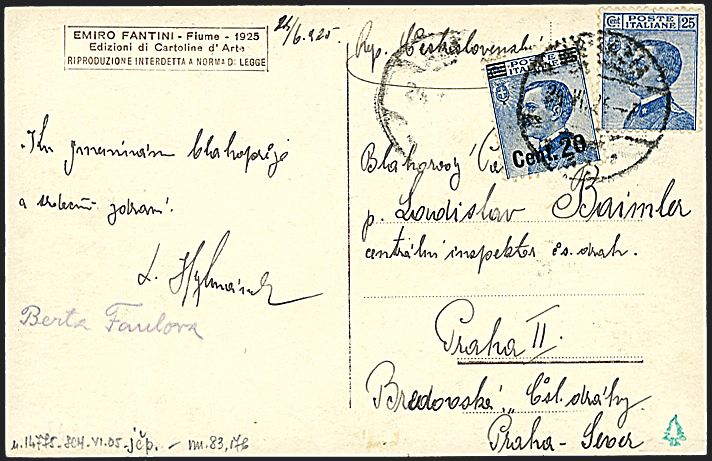 EMIRO FANTINI - Fiume - 1925
Edizioni di Cartoline d'Arte
RIPRODUZIONE INTERDETTA A NORMA DI LEGGE
24/6.925
Rep. Československá
POSTE
ITALIANE
25
POSTE
ITALIANE
Cent. 20
Ku jmeninám blahopřeje
a srdečně zdraví.
Berta Faulova
Blahorový
p. Ladislav Baimler
centrální inspektor čs. drah.
Praha II.
Bredovská, Čsl. dráhy
Praha - Sever